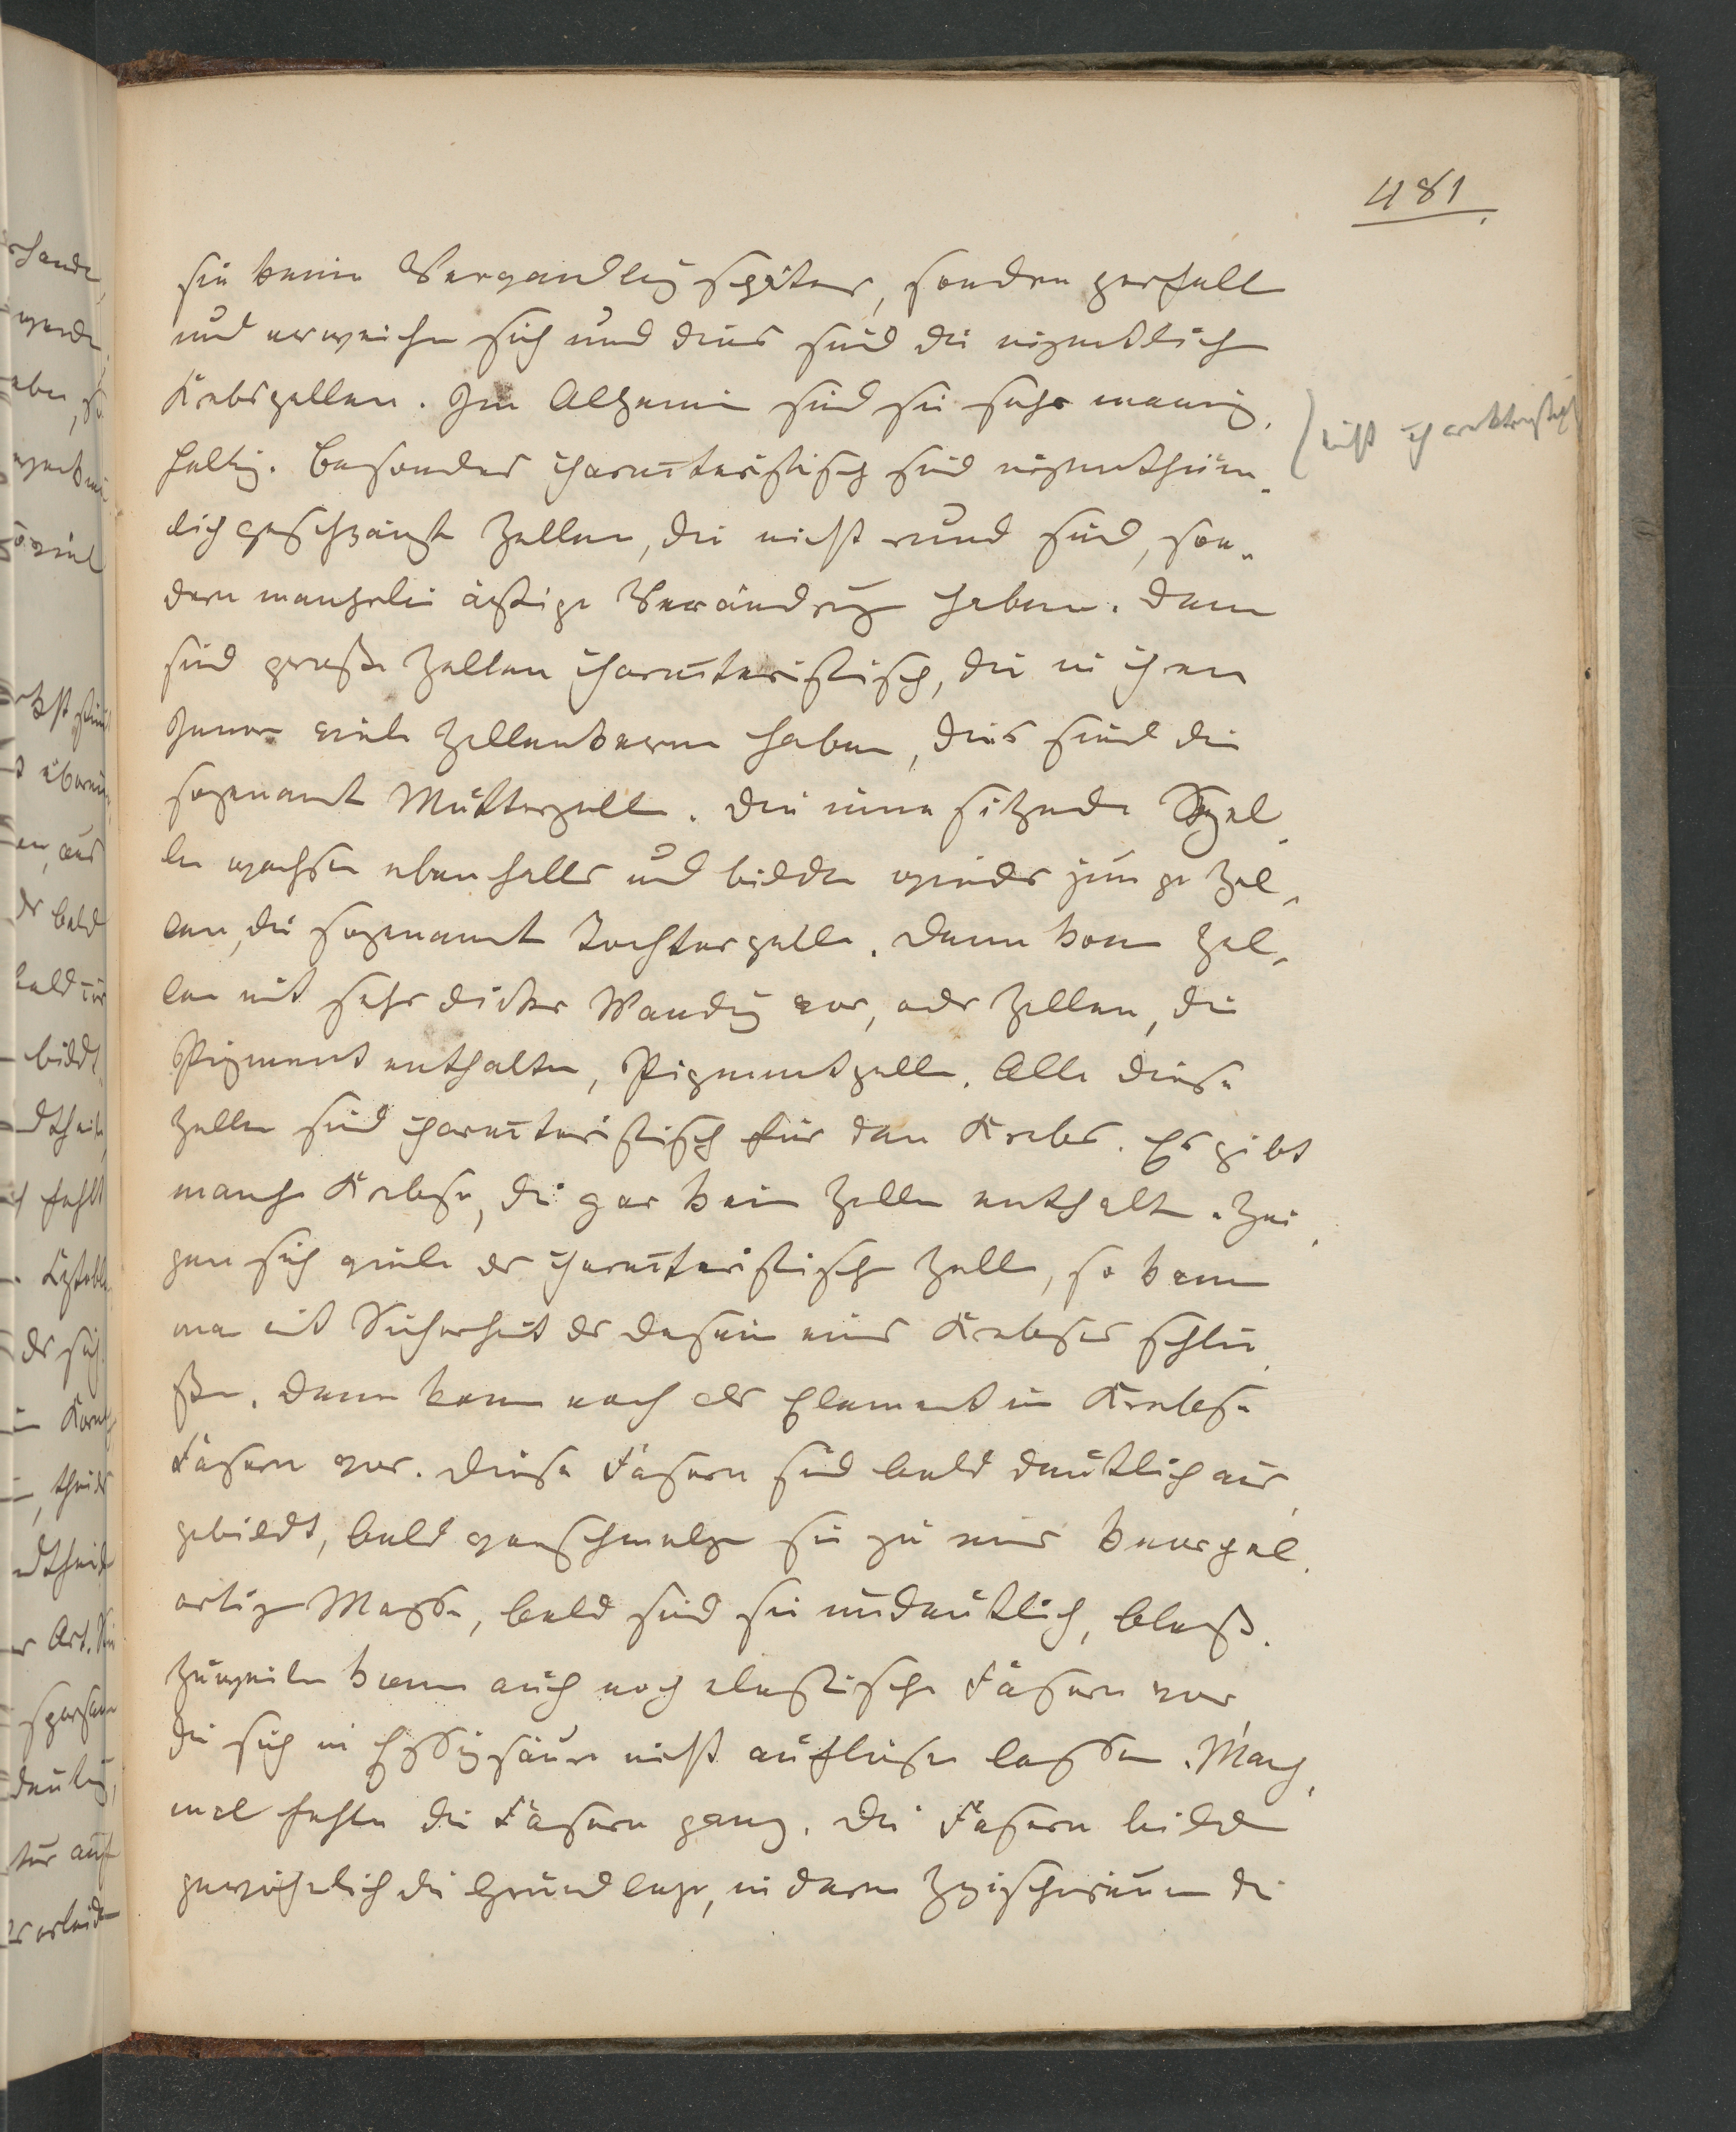 481
sie keine Verwandlung später, sondern zerfallen
und erweichen sich und dies sind die eigentlichen
Krebszellen. Im Allgemein sind sie sehr mannig-
faltig. Besonders charackteristisch sind eigenthüm-
lich geschwänzte Zellen, die nicht rund sind, son-
dern mancherlei ästige Verändrung haben. Dann
sind große Zellen charackteristisch, die in ihren
Innern viele Zellenkerne haben, dies sind die
sogenannt Mutterzellen. Die inne sitzende Zel-
len wachsen ebenfalls und bilden wieder junge Zel-
len, die sogenannt Tochterzelle. Dann komm Zel-
len mit sehr dicker Wandung vor, oder Zellen, die
Pigment enthalten, Pigmentzelle. Alle diese
Zellen sind charackteristisch für den Krebs. Es gibt
manche Krebse, die gar kein Zellen enthalten. Zei-
gen sich viele der charackteristische Zelle, so kann
man mit Sicherheit der Dasein eines Krebses schlie-
ßen. Dann komm noch als Element im Krebse
Fasern vor. Diese Fasern sind bald deutlich aus-
gebildt, bald verschmelzen sie zu einer knorpel-
artigen Masse, bald sind sie undeutlich, blaß.
Zuweilen komm auch noch elastische Fasern vor,
die sich in Essigsäure nicht auflösen lassen. Manch-
mal fehlen die Fasern ganz. Die Fasern bilden
gewöhnlich die Grundlage, in deren Zwischenräumen die
nicht charakteristisch